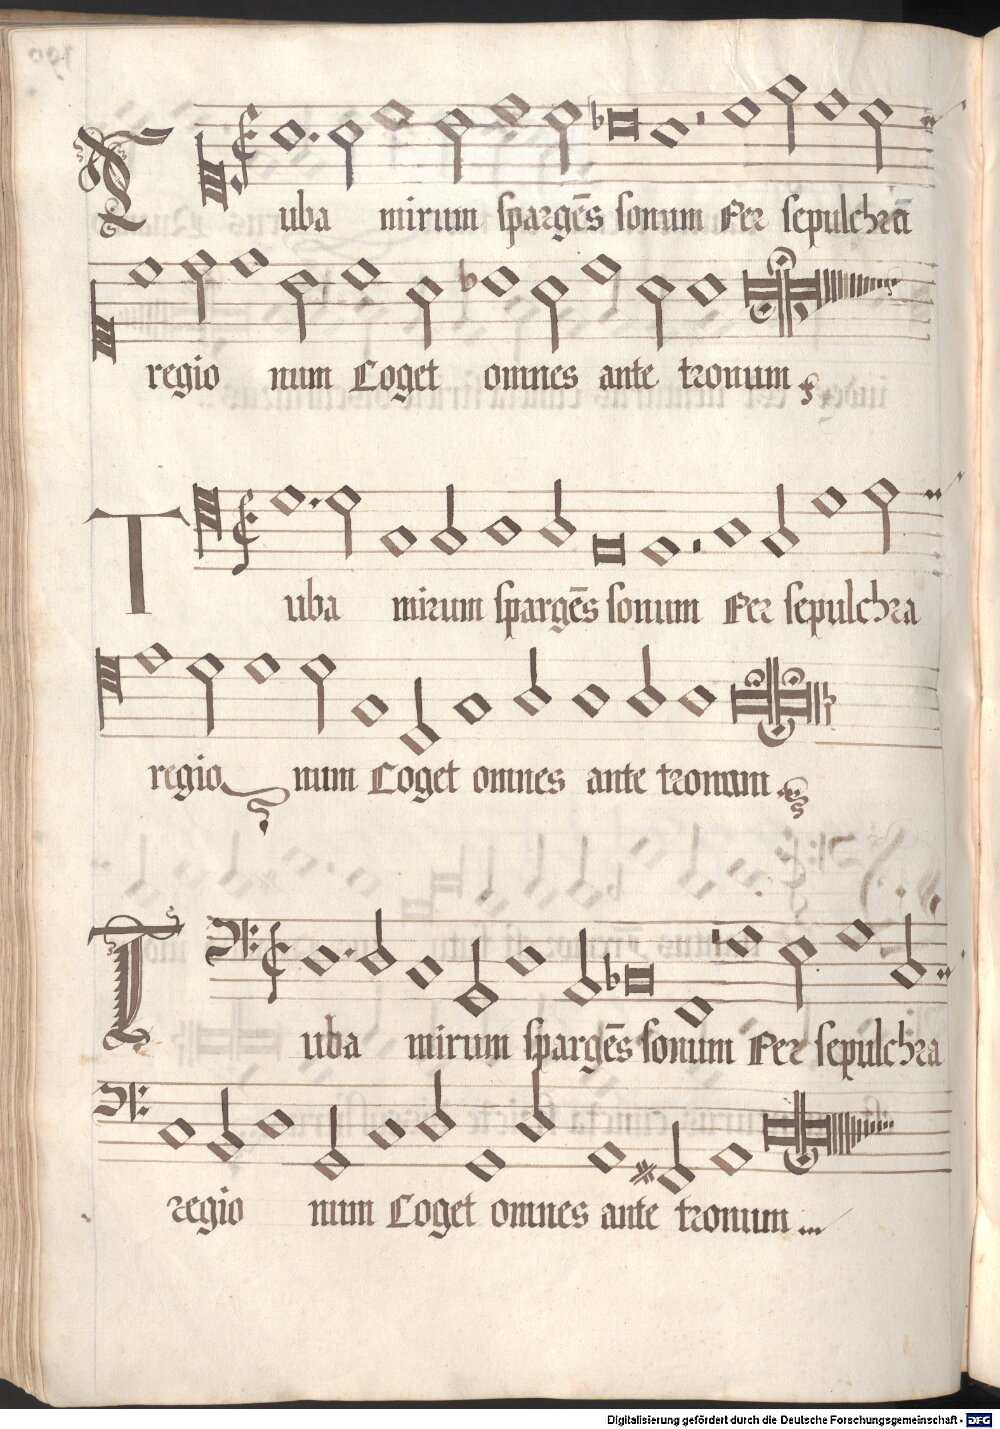 Tuba mirum spargēs sonum Per sepulchrā
regio num Coget omnes ante tronum
Tuba mirum spargēs sonum Per sepulchra
regio num Coget omnes ante tronum
Tuba mirum spargēs sonum Per sepulchra
regio num Coget omnes ante tronum
Digitalisierung gefördert durch die Deutsche Forschungsgemeinschaft - DFG